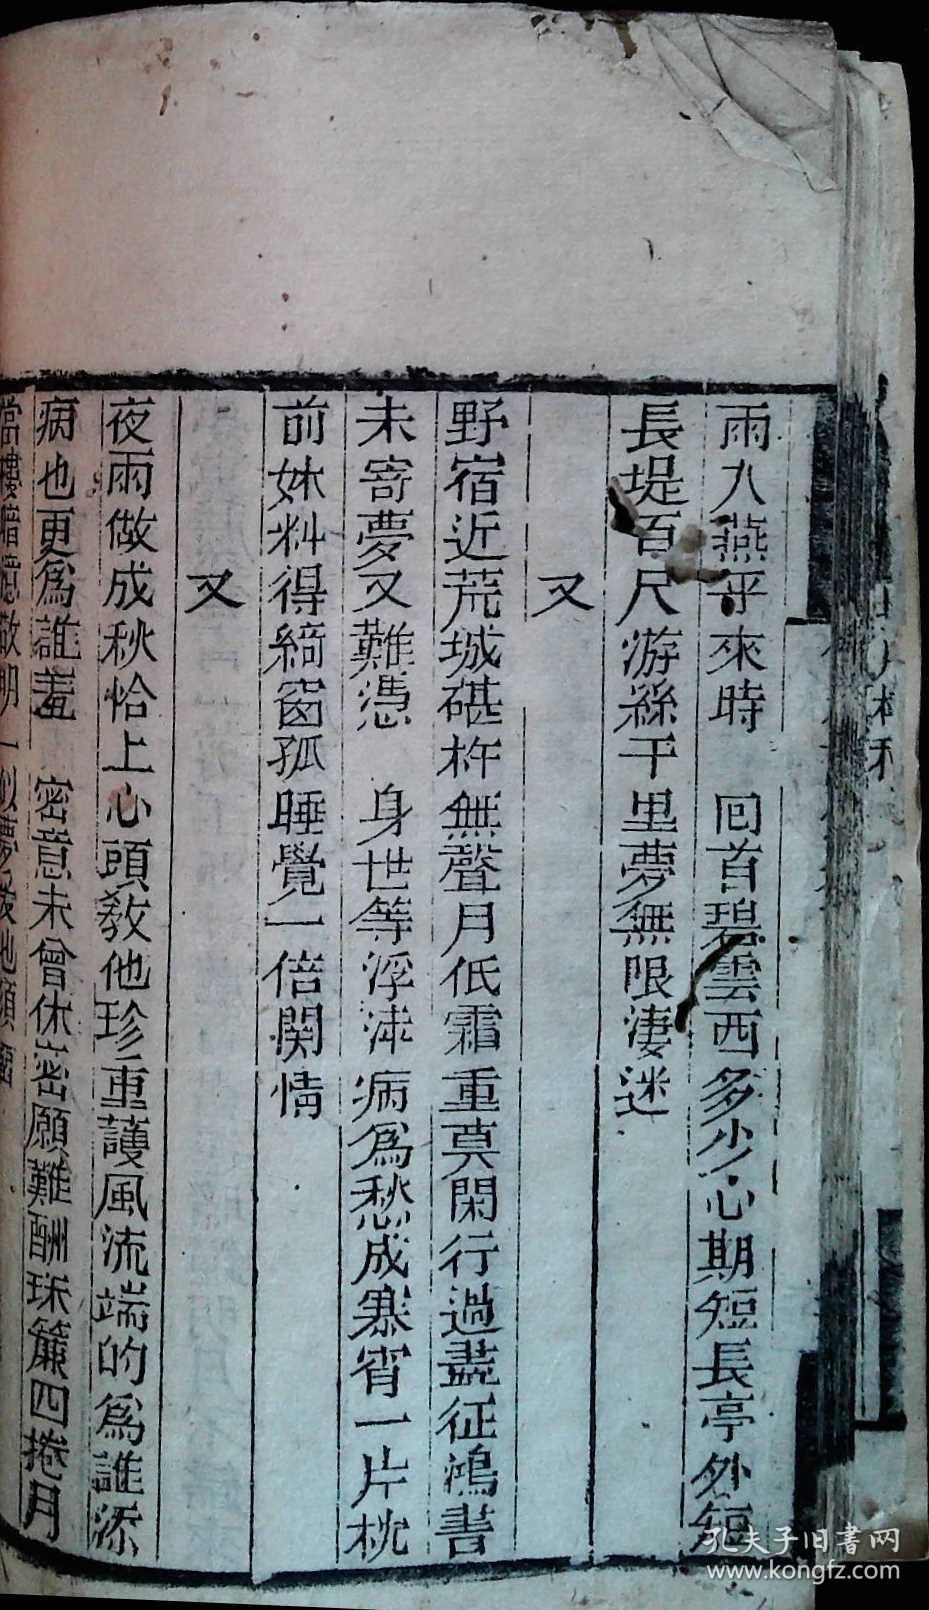 雨人燕乎來時　回首碧雲西多少心期短長亭外短
長堤百尺游絲千里夢無限淒迷
又
野宿近荒城碪杵無聲月低霜重莫閑行過盡征鴻書
未寄夢又難憑　身世等浮沬病為愁成寒宵一片枕
前妺料得綺窗孤睡覺一倍関情
又
夜雨做成秋恰上心頭敎他珍重護風流端的為誰添
病也更為誰羞　密意未曾休密願難酬珠簾四捲月
當樓暗憶歡期一似夢夢也須留
孔夫子旧書网
www.kongfz.com